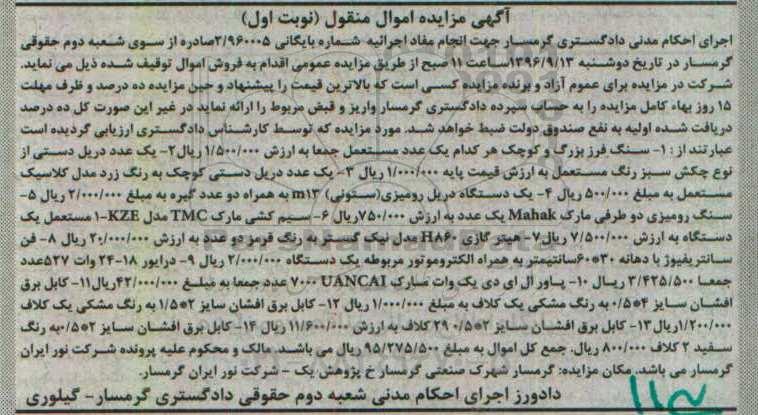 آگهی مزایده اموال منقول (نوبت اول)
اجرای احکام مدنی دادگستری گرمسار جهت انجام مفاد اجرائیه شماره بایگانی ۲/۹۶۰۰۰۵صادره از سوی شعبه دوم حقوقی
گرمسار در تاریخ دوشنبه ۱۳۹۶/۹/۱۳ساعت ۱۱ صبح از طریق مزایده عمومی اقدام به فروش اموال توقیف شده ذیل می نماید.
شرکت در مزایده برای عموم آزاد و برنده مزایده کسی است که بالاترین قیمت را پیشنهاد و حین مزایده ده درصد و ظرف مهلت
۱۵ روز بهاء کامل مزایده را به حساب سپرده دادگستری گرمسار واریز و قبض مربوط را ارائه نماید در غیر این صورت کل ده درصد
دریافت شده اولیه به نفع صندوق دولت ضبط خواهد شد. مورد مزایده که توسط کارشناس دادگستری ارزیابی گردیده است
عبارتند از : ۱- سنگ فرز بزرگ و کوچک هر کدام یک عدد مستعمل جمعا به ارزش ۱/۵۰۰/۰۰۰ ریال۲- یک عدد دریل دستی از
نوع چکش سبز رنگ مستعمل به ارزش قیمت پایه ۱/۰۰۰/۰۰۰ ریال ۳- یک عدد دریل دستی کوچک به رنگ زرد مدل کلاسیک
مستعمل به مبلغ ۵۰۰/۰۰۰ ریال ۴- یک دستگاه دریل رومیزی(ستونی) m۱۳ به همراه دو عدد گیره به مبلغ ۲/۰۰۰/۰۰۰ ریال ۵-
سنگ رومیزی دو طرفی مارک Mahak یک عدد به ارزش ۷۵۰/۰۰۰ریال ۶- سیم کشی مارک TMC مدل KZE-۱ مستعمل یک
دستگاه به ارزش ۷/۵۰۰/۰۰۰ ریال۷- هیتر گازی H۸۶۰ مدل نیک گستر به رنگ قرمز دو عدد به ارزش ۲۰/۰۰۰/۰۰۰ ریال ۸- فن
سانتریفیوژ با دهانه ۳۰*۶۰سانتیمتر به همراه الکتروموتور مربوطه یک دستگاه ۲/۰۰۰/۰۰۰ ریال ۹- درایور ۱۸-۲۴ وات ۵۲۷عدد
جمعا ۳/۴۲۵/۵۰۰ ریال ۱۰- پاور ال ای دی یک وات مارک UANCAI ۷۰۰۰ عدد جمعا به مبلغ ۴۲/۰۰۰/۰۰۰ریال۱۱- کابل برق
افشان سایز ۴*۰/۵ به رنگ مشکی یک کلاف به مبلغ ۱/۰۰۰/۰۰۰ ریال ۱۲- کابل برق افشان سایز ۲*۱/۵ به رنگ مشکی یک کلاف
۱/۲۰۰/۰۰۰ریال۱۳- کابل برق افشان سایز ۲*۰/۵ ۲۹ کلاف به ارزش ۱۱/۶۰۰/۰۰۰ ریال ۱۴- کابل برق افشان سایز ۲*۰/۵به رنگ
سفید ۲ کلاف ۸۰۰/۰۰۰ ریال. جمع کل اموال به مبلغ ۹۵/۲۷۵/۵۰۰ ریال می باشد. مالک و محکوم علیه پرونده شرکت نور ایران
گرمسار می باشد. مکان مزایده: گرمسار شهرک صنعتی گرمسار خ پژوهش یک - شرکت نور ایران گرمسار.
دادورز اجرای احکام مدنی شعبه دوم حقوقی دادگستری گرمسار- گیلوری